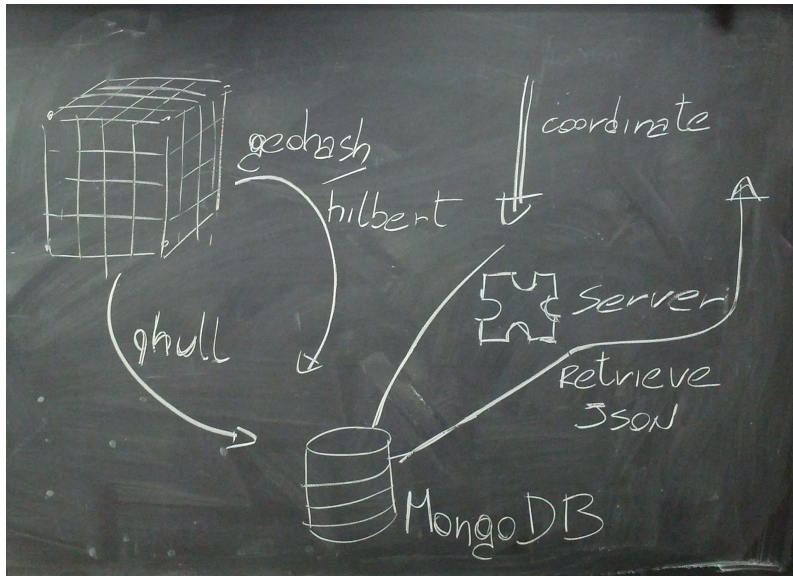 geohash/
hilbert
coordinate
qhull
Server
Retrieve
JSON
MongoDB